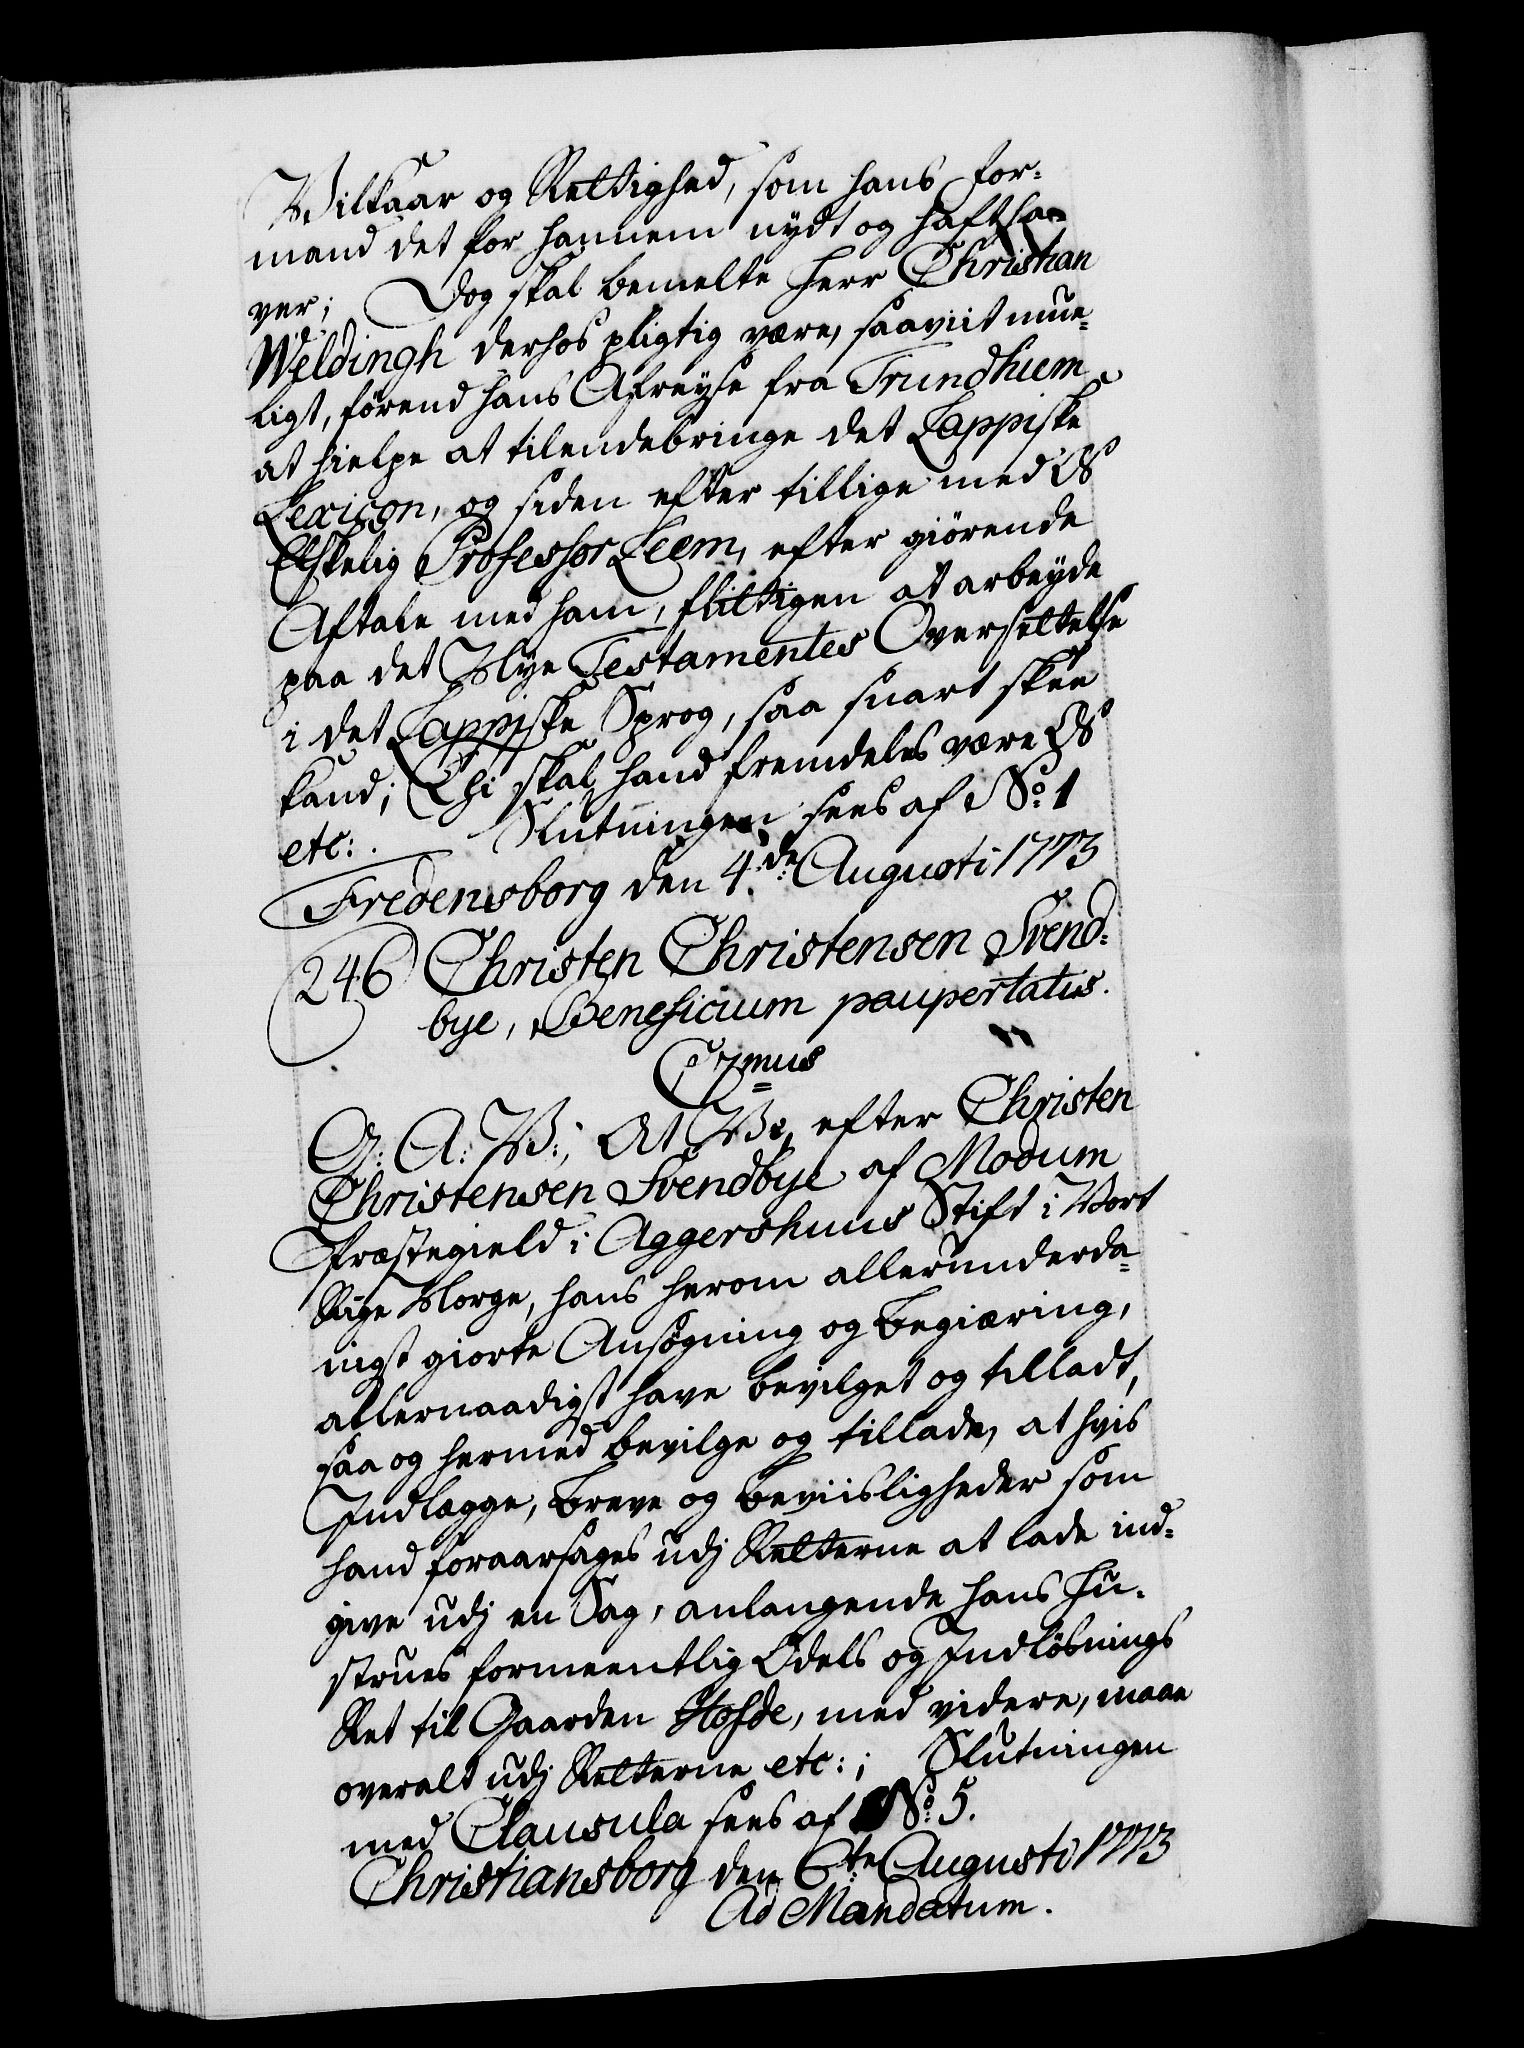 Vilkaar og Rettighed, som hans For-
mand det for hannem nydt og haft ha-
ver; Dog skal bemelte Herr Christian
Weldingh derhos pligtig være, saaviit mue-
ligt, førend hans Afreyse fra Trundhiem
at hielpe at tilendebringe det Lappiske
Lexicon, og siden efter tillige med Os
Elskelig Professor Leem, efter giörende
Aftale med ham, flittigen at arbeyde
paa det Nye Testamentes Oversettelse
i det Lappiske Sprog, saa snart skee
kand; Thi skal hand fremdeles være Os
etc: . Slutningen sees af No: 1
Fredensborg den 4.de Augusti 1773
246 Christen Christensen Svend-
bye, Beneficium paupertatis.
C 7mus
G: A: V:; At Vi, efter Christen
Christensen Svendbye af Modum
Præstegield i Aggershuus Stift i Vort
Rige Norge, hans herom allerunderda-
nigst giorte Ansøgning og Begiæring,
allernaadigst have bevilget og tilladt,
saa og hermed bevilge og tillade, at hvis
Indlægge, Breve og Beviisligheder som
hand foraarsages udj Retterne at lade ind-
give udj en Sag, anlangende hans Hu-
strues formeentlig Odels og Indlösnings
Ret til Gaarden Hofde, med videre, maae
overalt udj Retterne etc: ; Slutningen
med Clausula sees af No: 5.
Christiansborg den 6te Augusti 1773
Ad Mandatum.